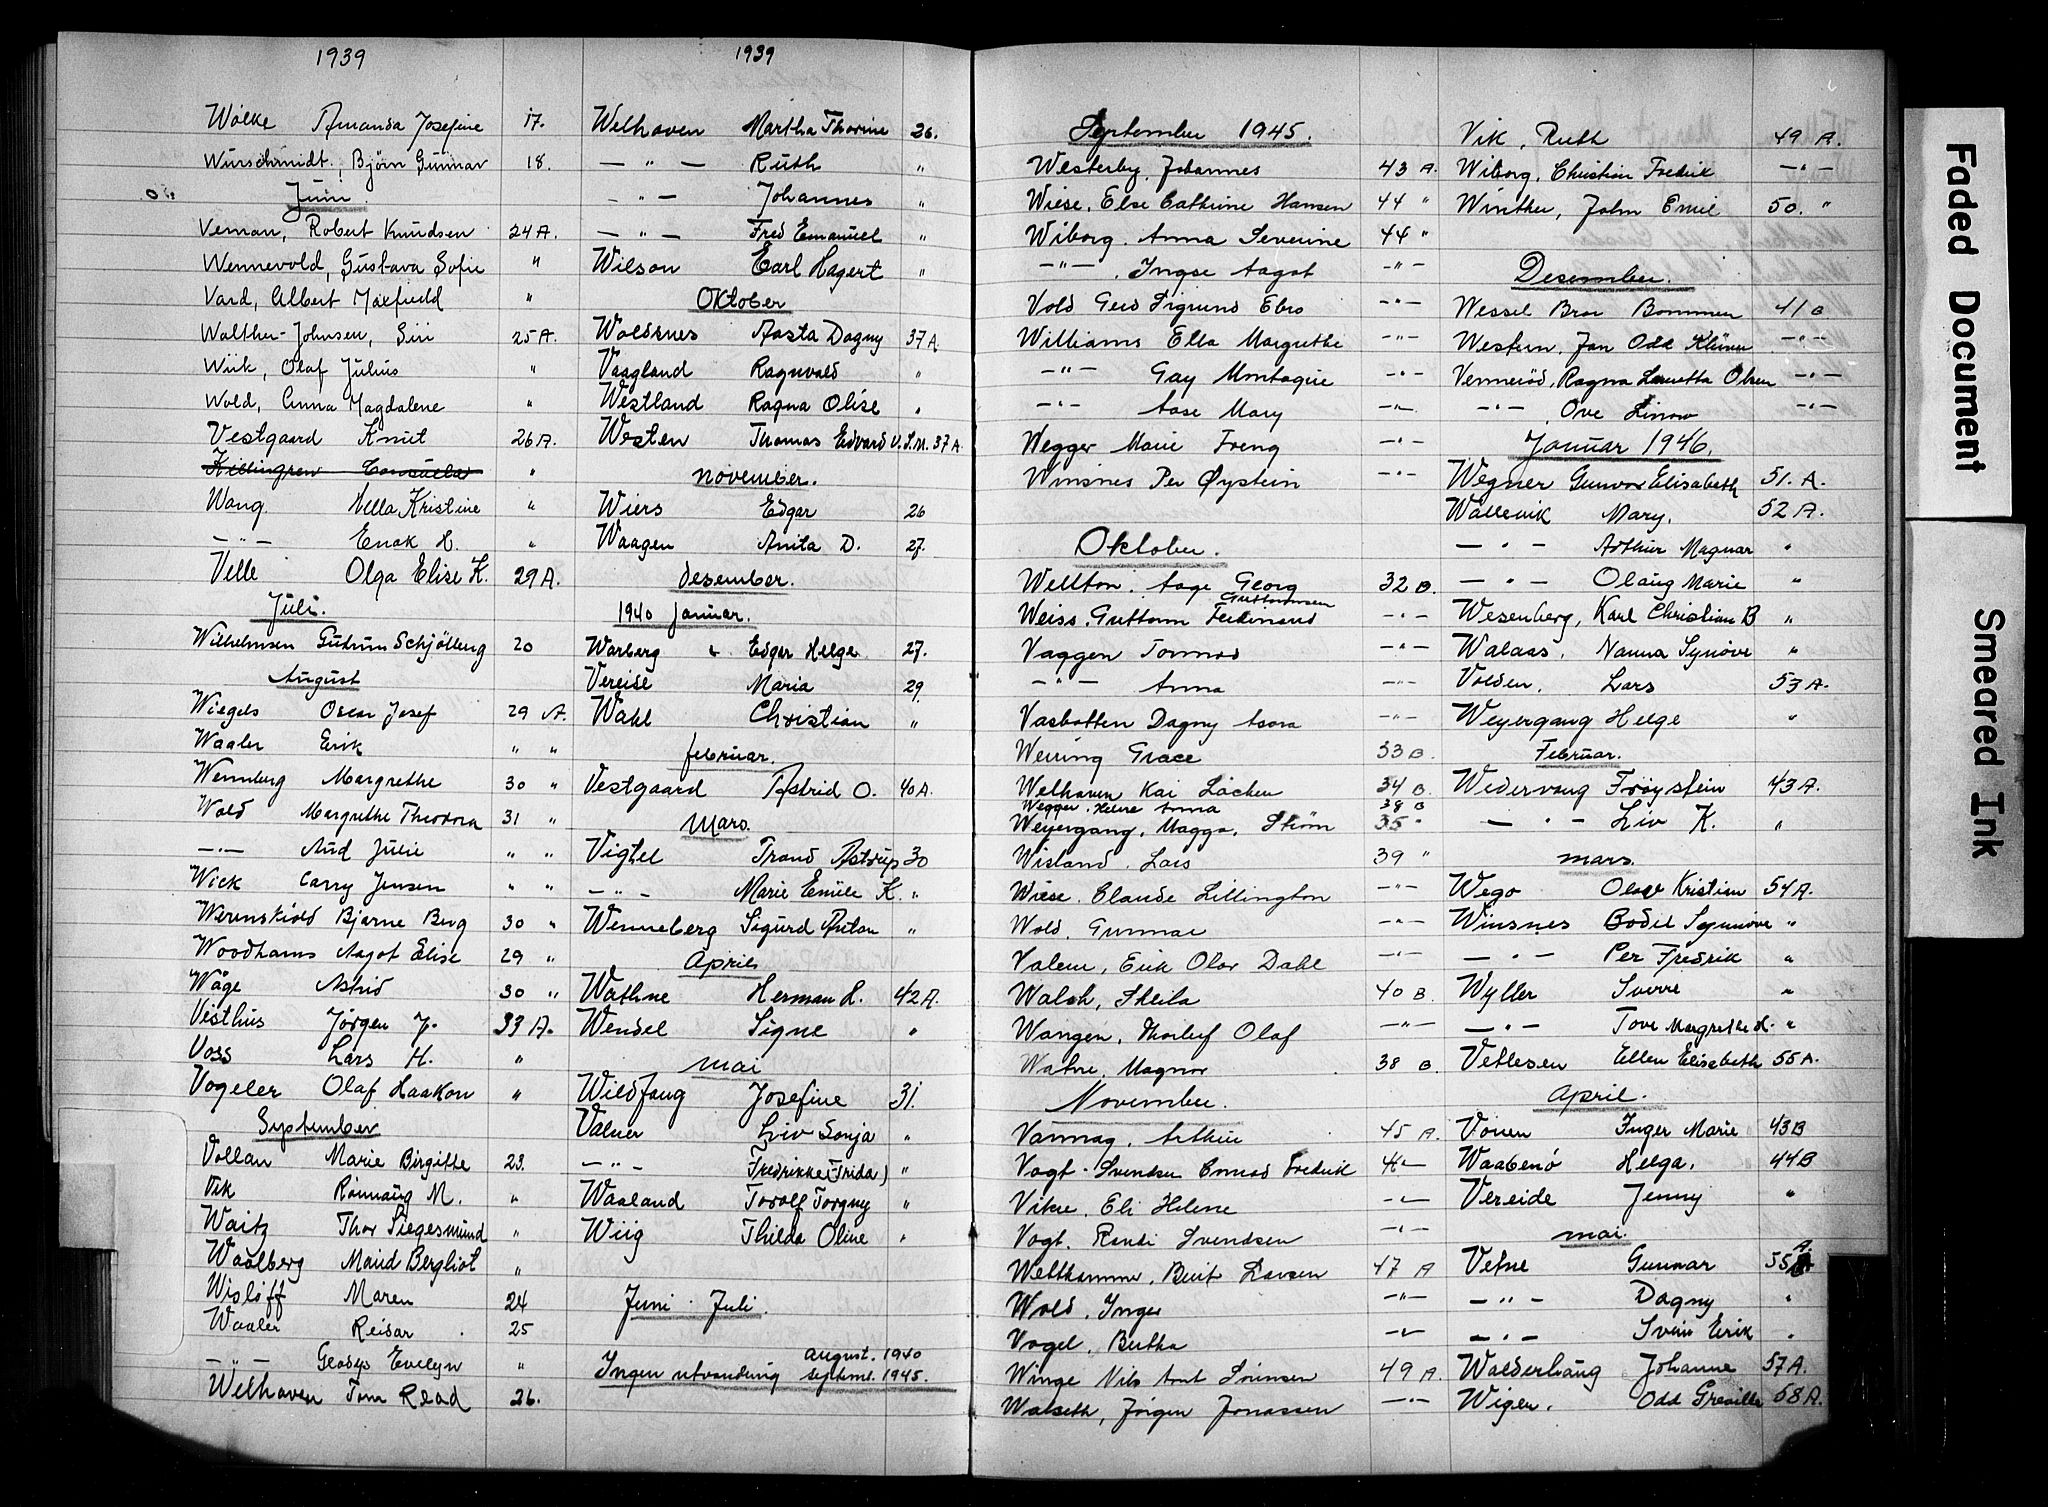 1939
Wölke Amanda Josefine 17.
Würschmidt, Bjørn Gunnar 18.
Juni
Veman, Robert Knudsen 24 A.
Wennevold, Gustava Sofie "
Vard, Albert Maxfield "
Walther-Johnsen, Siri 25 A.
Wiik, Olaf Julius "
Wold, Anna Magdalene "
Vestgaard Knut 26 A.
Killingren Consuela "
Wang Hella Kristine "
— " — Enok H. "
Velle Olga Elise K. 29 A.
Juli.
Wilhelmsen Gudrun Schjölberg 20
August
Wiegels Oscar Josef 29 A.
Waaler Erik " "
Wennberg Margrethe 30 "
Wold Margrethe Theodora 31 "
— " — Aud Julie " "
Wick Carry Jensen " "
Werenskiold Bjarne Berg 30 "
Woodhams Aagot Elise 29 "
Wåge Astrid 30 "
Visthus Jørgen J. 33 A.
Voss Lars H. "
Vogeler Olaf Haakon "
September
Vollan Marie Birgitte 23.
Vik Rønnaug M. "
Waitz Thor Siegesmund "
Waalberg Maud Bergliot "
Wisløff Maren 24
Waaler Reidar 25
— " — Gladys Evelyn "
Welhaven Tom Read 26.
1939
Welhaven Martha Thorine 26.
— " — Ruth "
— " — Johannes "
— " — Fred Emanuel "
Wilson Earl Hagert "
Oktober
Woldsnes Aasta Dagny 37 A.
Vaagland Ragnvald "
Westland Ragna Olise "
Westen Thomas Edvard V.S.M. 37 A.
november.
Wiers Edgar 26
Waagen Anita D. 27.
desember.
1940 januar.
Warberg Edgar Helge 27.
Vereide Maria 29.
Wahl Christian "
februar.
Vestgaard Astrid O. 40 A.
Mars.
Vigtel Trond Astrup 30
— " — Marie Emilie K. "
Wenneberg Sigurd Anton "
April
Wathne Herman H. 42 A.
Wendel Signe "
mai
Wildfang Josefine 31.
Valner Liv Sonja "
— " — Fredrikke (Frida) "
Waaland Torolf Torgny "
Wiig Thilda Oline "
Juni - Juli.
august. 1940
Ingen utvandring septemr. 1945.
September 1945.
Westerby, Johannes 43 A.
Wiese, Else Cathrine Hansen 44 "
Wiborg, Anna Severine 44 "
— " — , Ingse Aagot — " —
Vold Gerd Sigrund Ebro — " —
Williams Ella Margrethe — " —
— " — Gay Montague — " —
— " — Aase Mary — " —
Wegger Marie Freng — " —
Winsnes Per Øystein — " —
Oktober.
Wellton, Aage Georg 32 B.
Guttormsen
Weiss, Guttorm Ferdinand — " —
Vaggen Tormod — " —
— " — Anna — " —
Vasbotten Dagny Asora — " —
Werring Grace 33 B.
Welhaven Kai Lochen 34 B.
Wegger, Helene Anna 38 B
Weyergang, Magga, Strøm 35 "
Wisland, Lars 39 "
Wiese, Claude Lillington — " —
Wold, Gunnar — " —
Valem, Erik Olav Dahl — " —
Walsh, Sheila 40 B.
Wangen, Thorleif Olaf — " —
Watne, Magnor 38 B.
November.
Vannag, Arthur 45 A.
Vogt-Svendsen Conrad Fredrik — " —
Vikre, Eli Helene — " —
Vogt, Randi Svendsen — " —
Welthammer, Berit Larsen 47 A
Wold, Inger — " —
Vogel, Bertha — " —
Winge Nils Arnt Sørensen 49 A.
Walseth, Jørgen Jonassen — " —
Vik, Ruth 49 A.
Wiborg, Christian Fredrik — " —
Winther, John Emil 50. "
Desember.
Wessel Bror Bommen 41 B
Western, Jan Odd Klüwer — " —
Vennerød, Ragna Lauretta Olsen — " —
— " — Ove Linow — " —
Januar 1946.
Wegner Gunvor Elisabeth 51. A.
Wallevik Mary. 52 A.
— " — Arthur Magnar "
— " — Olaug Marie "
Wesenberg, Karl Christian B "
Walaas, Nanna Synøve "
Volden, Lars 53 A.
Weyergang Helge "
Februar.
Wedervang Frøystein 43 A.
— " — Liv K. "
mars.
Wego Olav Kristian 54 A.
Winsnes Bodil Synnøve "
— " — Per Fredrik "
Wyller Sverre "
— " — Tove Margrethe H. "
Vetlesen Ellen Elisabeth 55 A.
April.
Vonen Inger Marie 43 B
Waabenö Helga. 44 B
Vereide Jenny "
mai.
Vetne Gunnar 55 A
— " — Dagny "
— " — Svein Erik "
Walderhaug Johanne 57 A.
Wigen. Odd Greville 58 A.
Faded Document
Smeared Ink